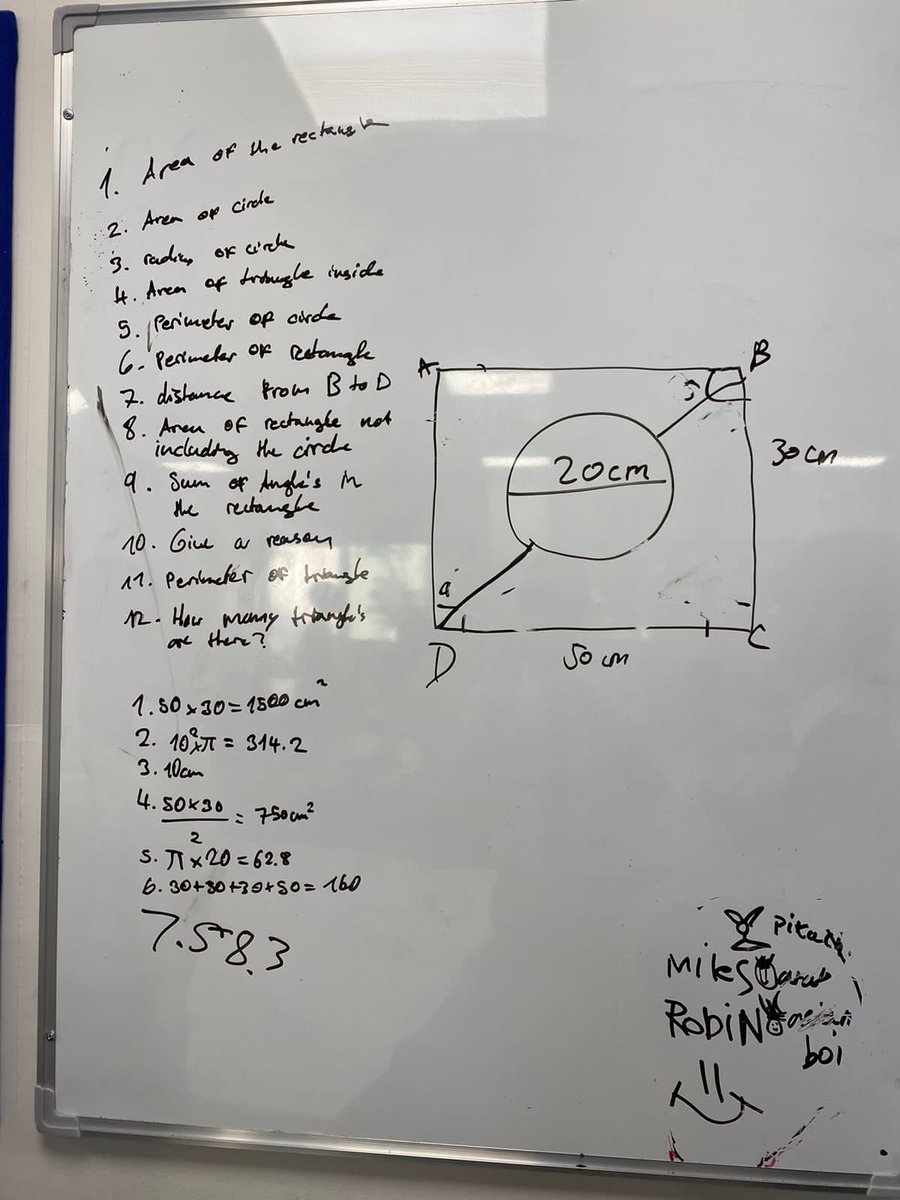 1. Area of the rectangle
2. Area of circle
3. radius of circle
4. Area of triangle inside
5. Perimeter of circle
6. Perimeter of rectangle
7. distance from B to D
8. Area of rectangle not
including the circle
9. Sum of Angle's in
the rectangle
10. Give a reason
11. Perimeter of triangle
12. How many triangle's
are there?
A
B
20cm
30cm
D
50cm
C
1. 50 x 30 = 1500 cm²
2. 10² x π = 314.2
3. 10cm
4. 50x30
2
= 750cm²
5. π x 20 = 62.8
6. 30+50+30+50 = 160
7. 58.3
Miles
Robin
boi